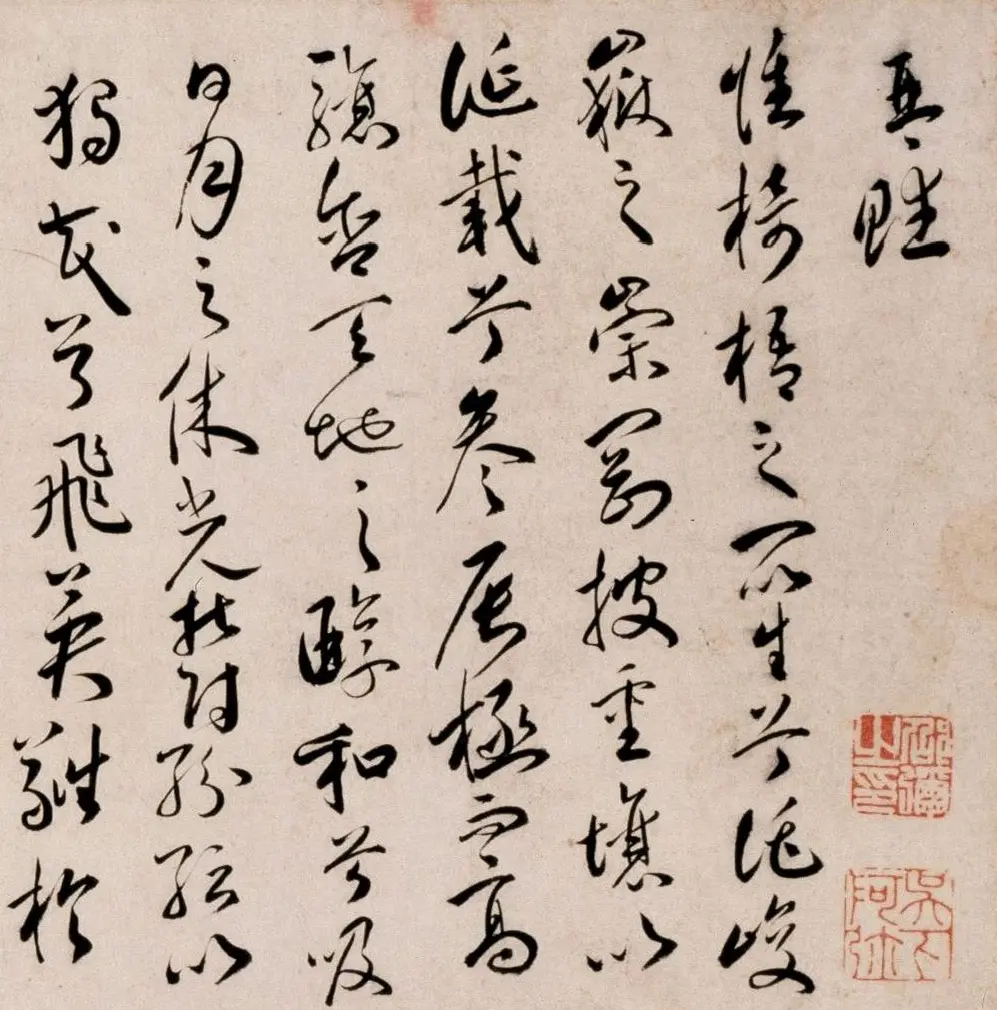 琴賦
惟椅梧之所生兮託峻
嶽之崇岡披重壤以
誕載兮參辰極而高
驤含天地之醇和兮吸
日月之休光鬱紛紜以
獨茂兮飛英蕤於